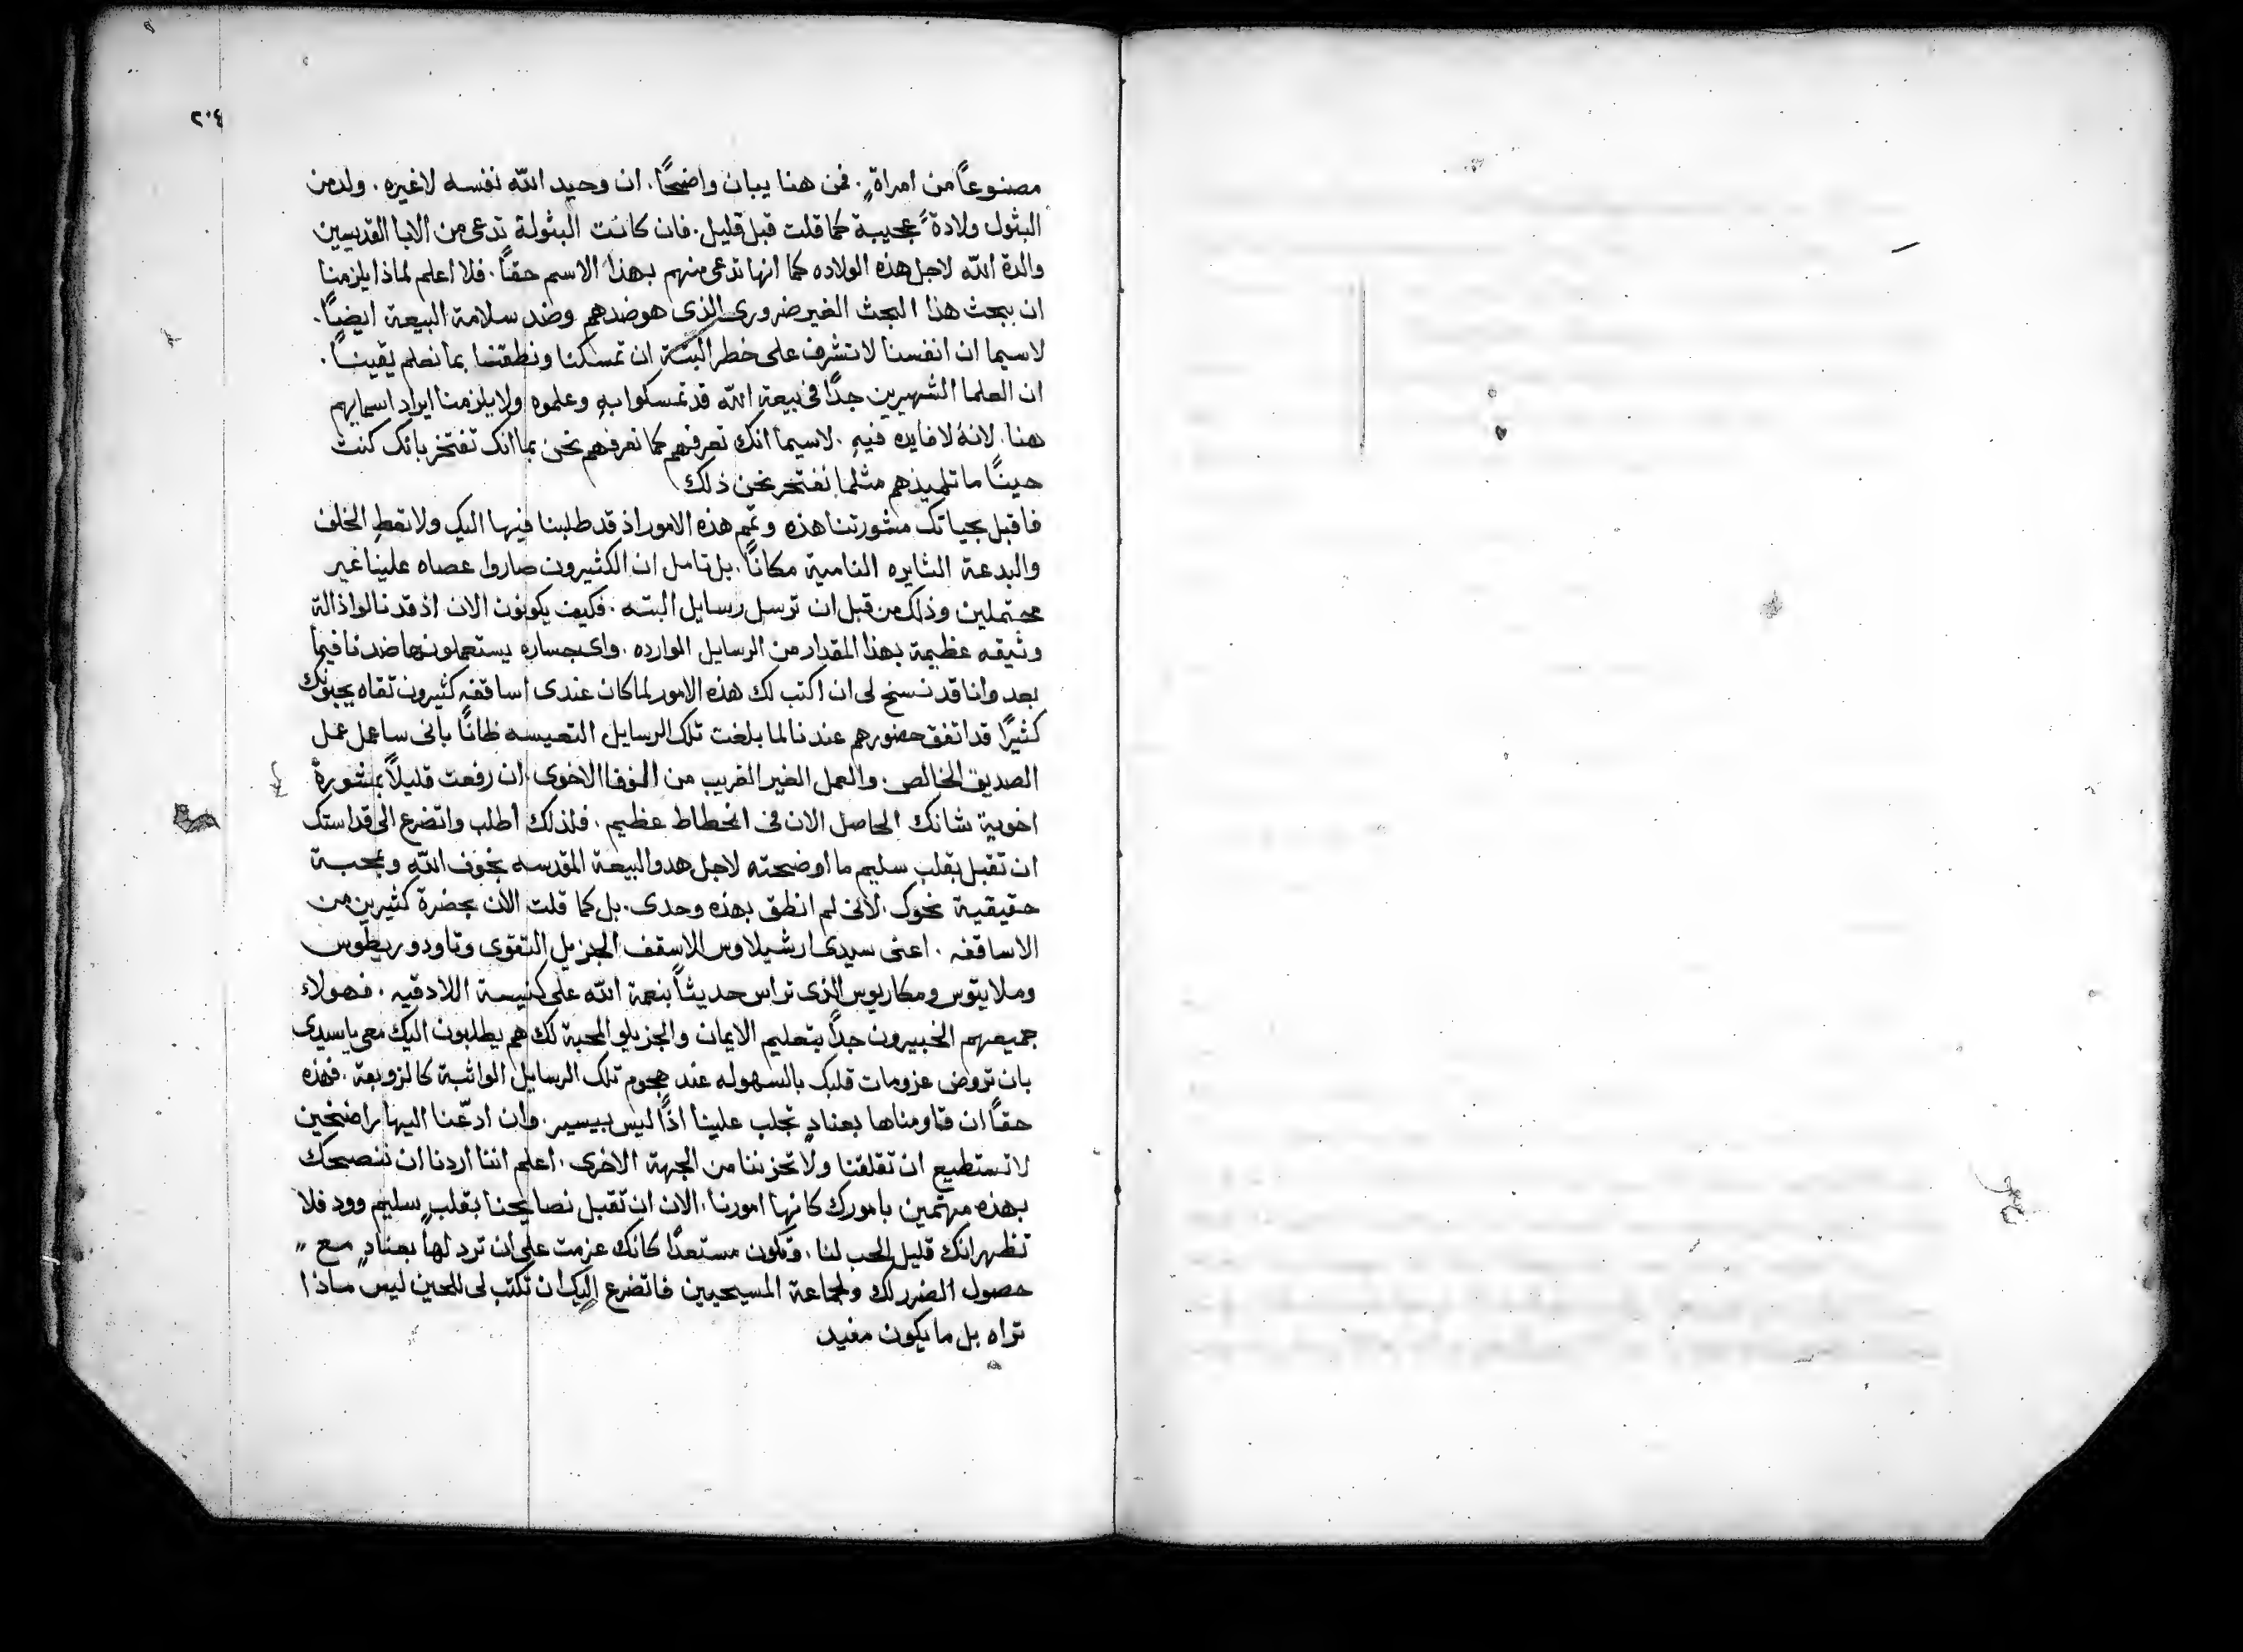 ٢٠٤
مصنوعاً من امراةٍ. فمن هنا يبان واضحًا. ان وحيد الله نفسه لاغيره. ولد من
البثول ولادةً عجيبة كما قلت قبل قليل. فان كانت البثولة تدعى من الابا القديسين
والدة الله لاجل هذه الولاده كما انها تدعى منهم بهذا الاسم حقاً. فلا اعلم لماذا يلزمنا
ان نبحث هذا البحث الغير ضرورى الذى هو ضدهم وضد سلامة البيعة ايضاً.
لاسيما ان انفسنا لا تشرف على خطر البتة ان تمسكنا ونطقنا بما نعلم يقيناً.
ان العلما الشهيرين جدًا فى بيعة الله قد تمسكوا بهِ وعلموه ولا يلزمنا ايراد اسمايهم
هنا. لانهُ لا فايده فيهِ. لاسيما انك تعرفهم كما نعرفهم نحن بما انك تفتخر بانك كنت
حينًا ما تلميذهم مثلما نفتخر نحن ذلك
فاقبل بحياتك مشورتنا هذه وتمم هذه الامور اذ قد طلبنا فيها اليك ولا تعطِ الخلف
والبدعة الثايره النامية مكانًا. بل تامل ان الكثيرون صاروا عصاه علينا غير
محتملين وذلك من قبل ان ترسل رسايل البته. فكيف يكونون الان اذ قد نالوا ذالة
وثيقه عظيمة بهذا المقدار من الرسايل الوارده. واى جساره يستعملونها ضدنا فيما
بعد وانا قد نسنح لى ان اكتب لك هذه الامور لما كان عندى اساقفه كثيرون تقاه يحبونك
كثيرًا قد اتفق حضورهم عندنا لما بلغت تلك الرسايل التعيسه ظانًا بانى ساعمل عمل
الصديق الخالص. والعمل الغير الغريب من الوفا الاخوى. ان رفعت قليلاً بمشورة
اخوية شانك الحاصل الان فى انحطاط عظيم. فلذلك اطلب واتضرع الى قداستك
ان تقبل بقلب سليم ما اوضحته لاجل هدو البيعة المقدسه بخوف الله وبمحبة
حقيقية نحوك. لانى لم انطق بهذه وحدى. بل كما قلت الان بحضرة كثيرين من
الاساقفه. اعنى سيدى ارشيلاوس الاسقف الجزيل التقوى وتاودوريطوس
وملايتوس ومكاريوس الذى تراس حديثاً بنعمة الله على كنيسة اللادقيه. فهولاء
جميعهم الخبيرون جداً بتعليم الايمان والجزيلو المحبة لك هم يطلبون اليك معى يا سيدى
بان تروض عزومات قلبك بالسهوله عند هجوم تلك الرسايل الواثبة كالزوبعة. فهذه
حقاً ان قاومناها بعنادٍ تجلب علينا اذًا ليس بيسير. وان ادعّنا اليها راضخين
لا تستطيع ان تقلقنا ولا تحزننا من الجهة الاخرى. اعلم اننا اردنا ان ننصحك
بهذه مهتمين بامورك كانها امورنا. الان ان تقبل نصايحنا بقلبٍ سليم وود فلا
تظهر انك قليل الحب لنا. وتكون مستعدًا كانك عزمت على ان ترد لها بعنادٍ مع
حصول الضرر لك ولجماعة المسيحيين فاتضرع اليك ان تكتب لى للحين ليس ماذا
تراه بل ما يكون مفيد